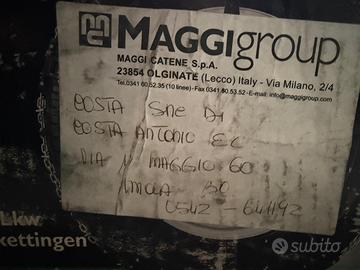 MAGGIgroup
MAGGI CATENE S.p.A.
23854 OLGINATE (Lecco) Italy - Via Milano, 2/4
Tel.0341 60.52.35 (10 linee) - Fax 0341 60.53.52 - E-mail: info@maggigroup.com
COSTA SNC DI
COSTA ANTONIO E C
VIA 1° MAGGIO 60
IMOLA BO
0542 - 641192
Lkw
kettingen
subito